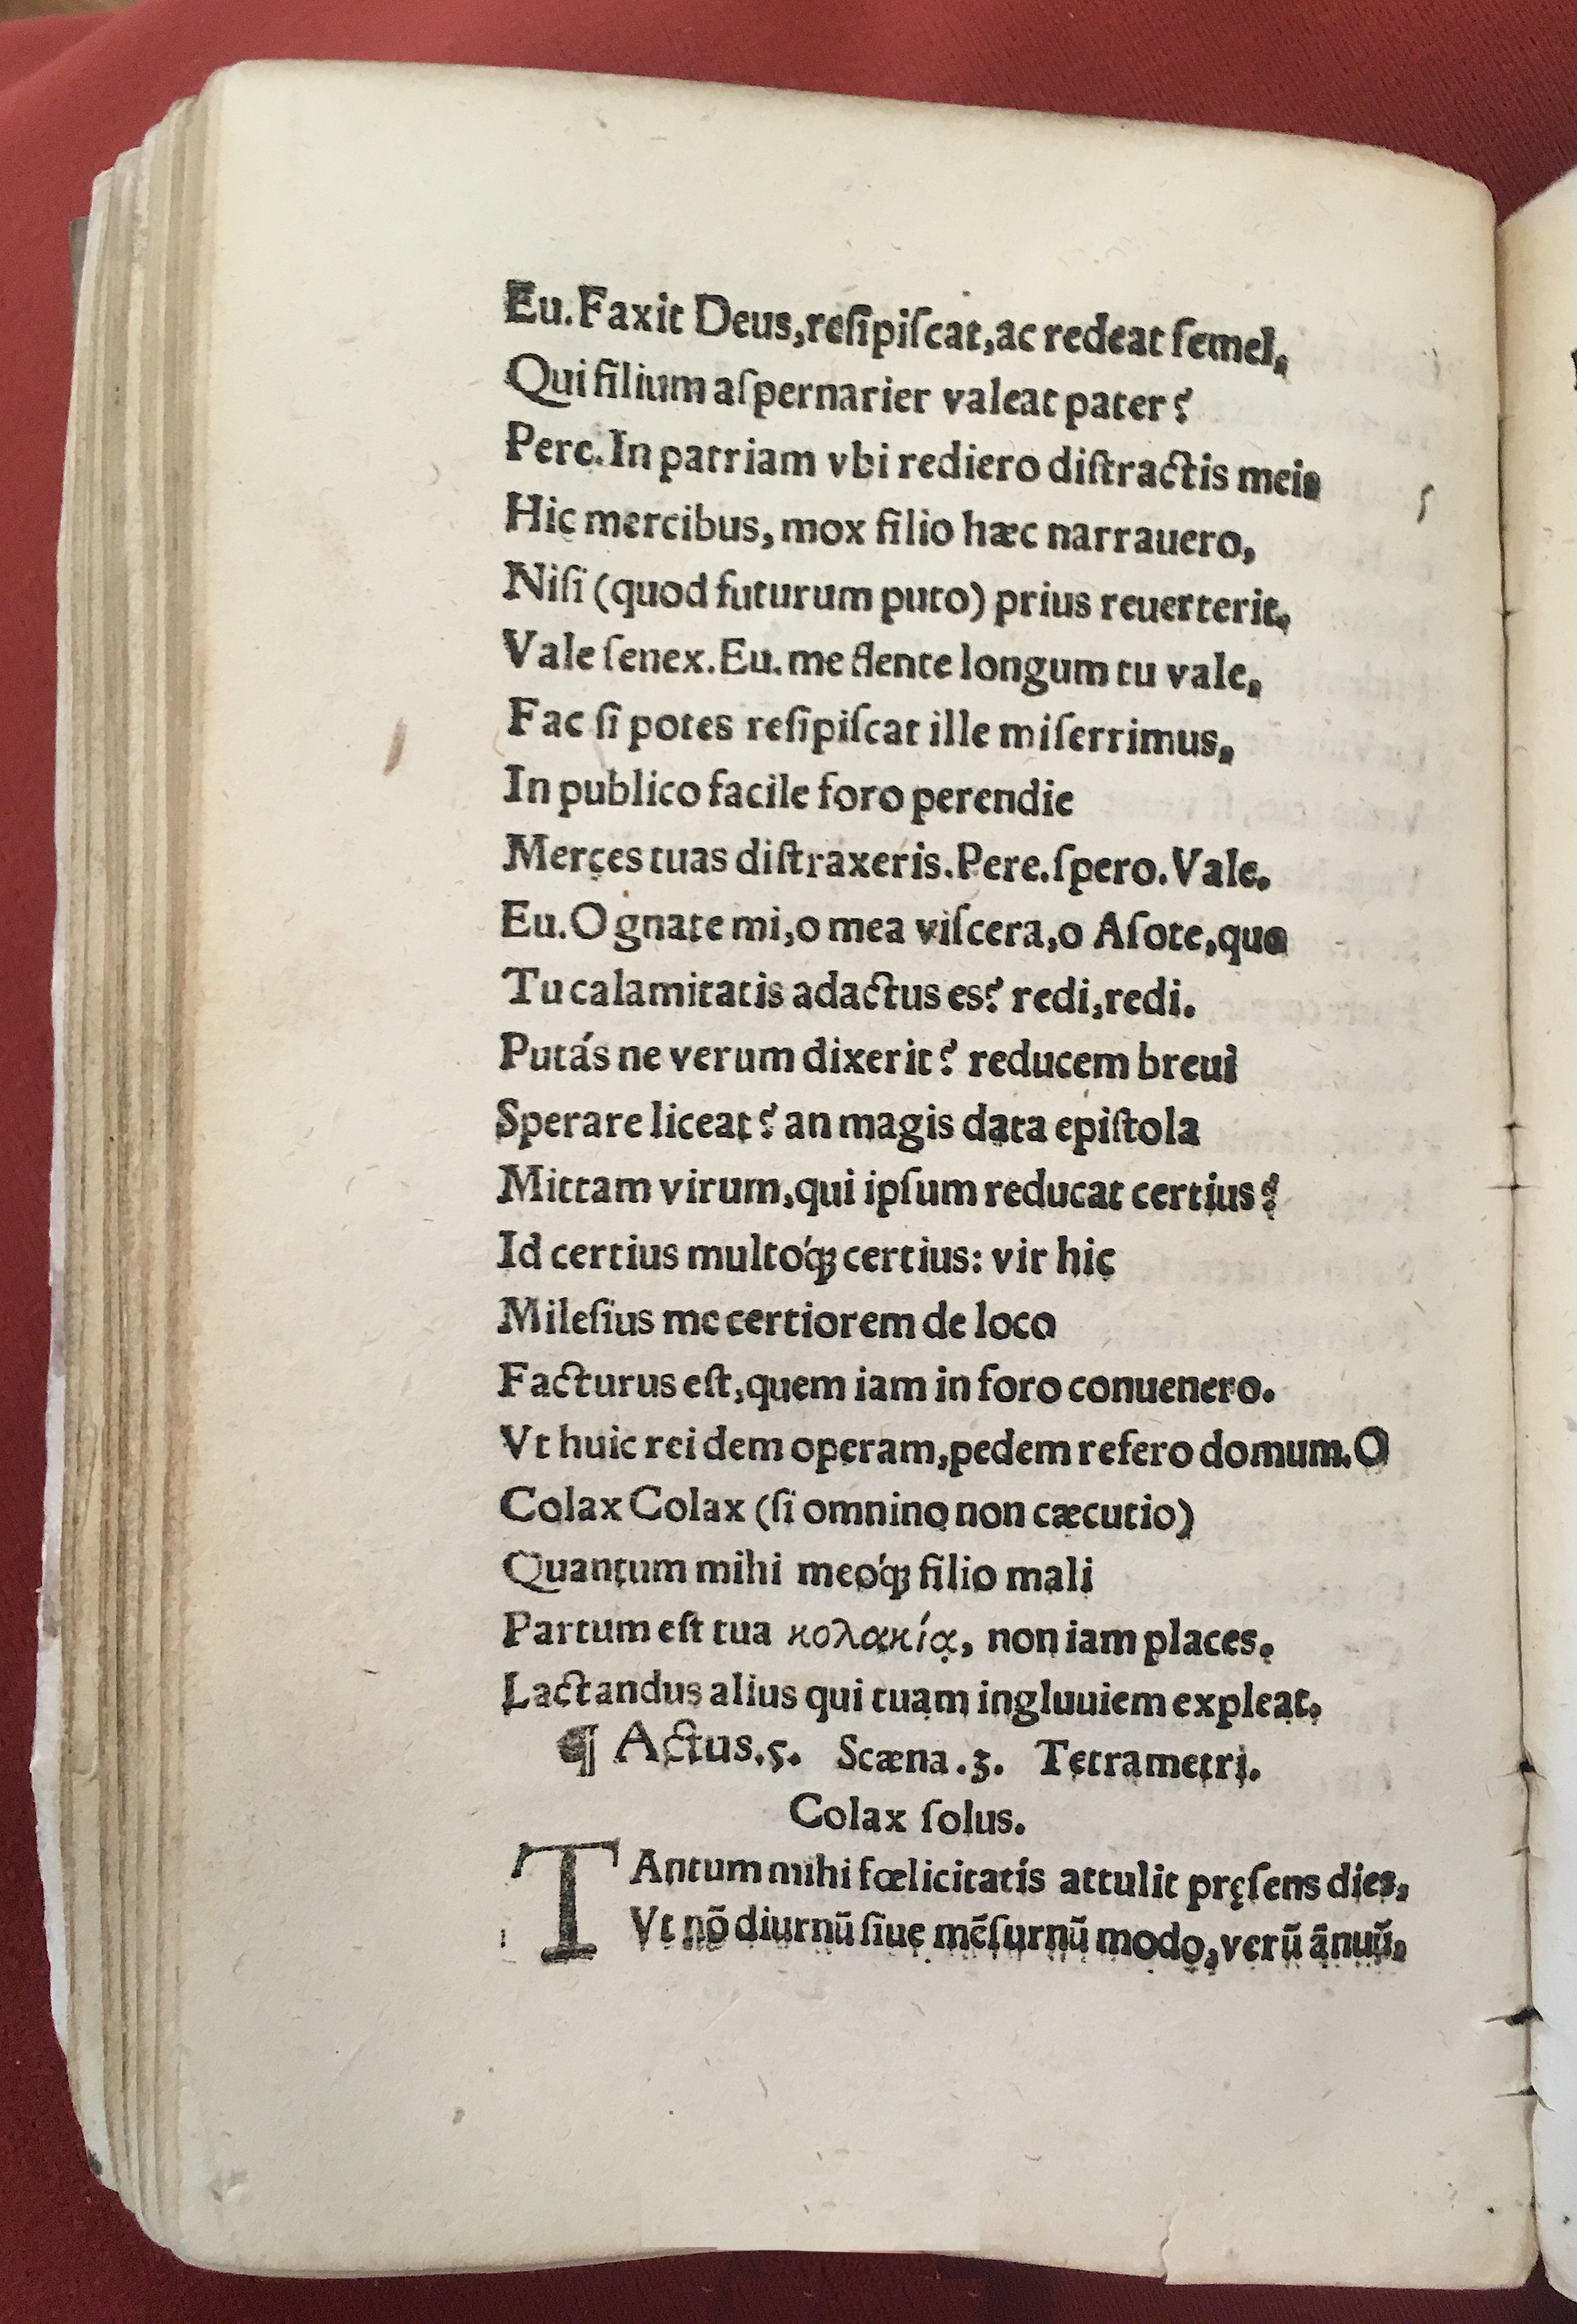 Eu.Faxit Deus,reſipiſcat,ac redeat ſemel,
Qui filium aſpernarier valeat pater?
Pere.In patriam vbi rediero diſtractis meis
Hic mercibus, mox filio hæc narrauero,
Niſi (quod futurum puto) prius reuerterit.
Vale ſenex.Eu. me flente longum tu vale,
Fac ſi potes reſipiſcat ille miſerrimus,
In publico facile foro perendie
Merces tuas diſtraxeris.Pere.ſpero.Vale.
Eu.O gnate mi,o mea viſcera,o Aſote,quo
Tu calamitatis adactus es? redi,redi.
Putás ne verum dixerit? reducem breui
Sperare liceat? an magis data epiſtola
Mittam virum,qui ipſum reducat certius?
Id certius multóq; certius: vir hic
Mileſius me certiorem de loco
Facturus eſt,quem iam in foro conuenero.
Vt huic rei dem operam,pedem refero domum.O
Colax Colax (ſi omnino non cæcutio)
Quantum mihi meóq; filio mali
Partum eſt tua κολακία, non iam places.
Lactandus alius qui tuam ingluuiem expleat.
¶ Actus.5. Scæna.3. Tetrametri.
Colax ſolus.
TAntum mihi fœlicitatis attulit pręſens dies,
Vt nõ diurnũ ſiue mẽſurnũ modo,verũ ãnuũ,